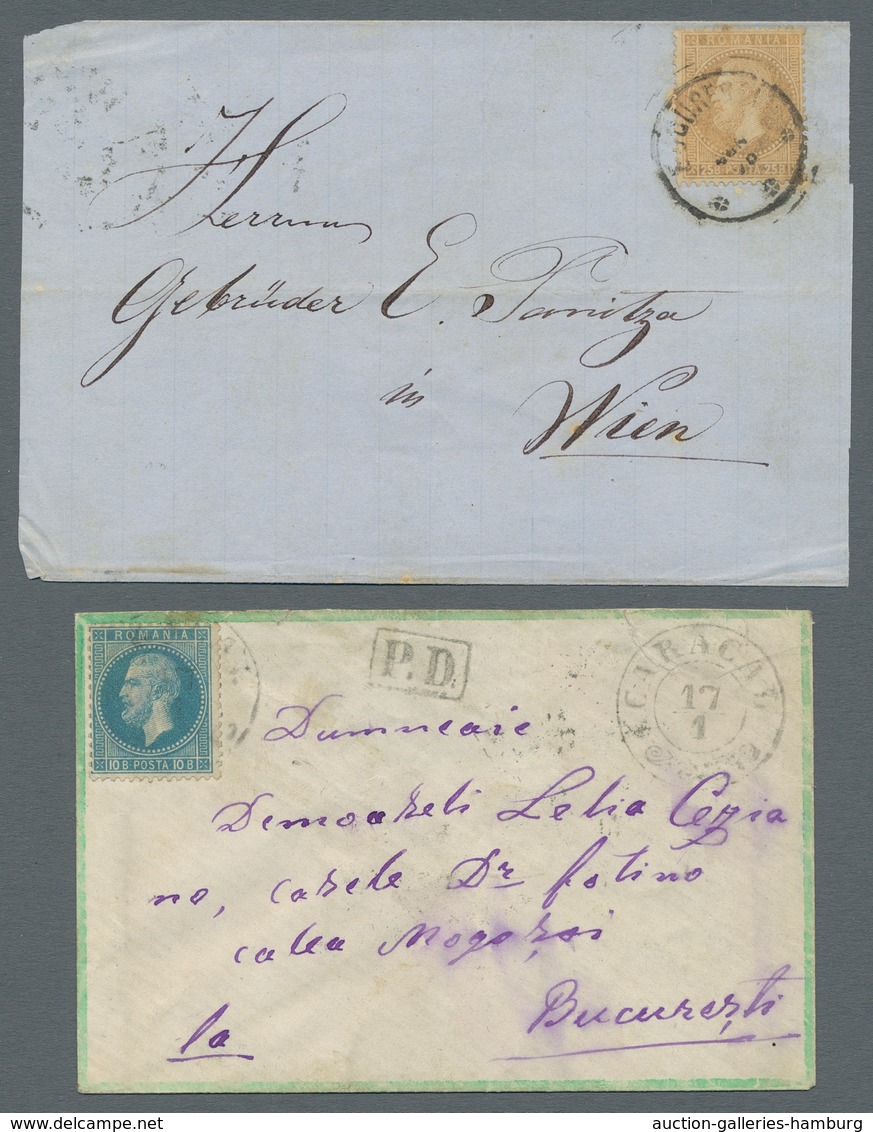 ROMANIA
25 B POSTA 25 B
Herrn
Gebrüder E. Panitza
in
Wien
ROMANIA
10 B POSTA 10 B
P.D.
CARACAL
17
1
Dumneaie
Demoazeli Lelia Cezia
no, casele Dr fotino
calea Mogoşoi
la Bucureşti
auction-galleries-hamburg